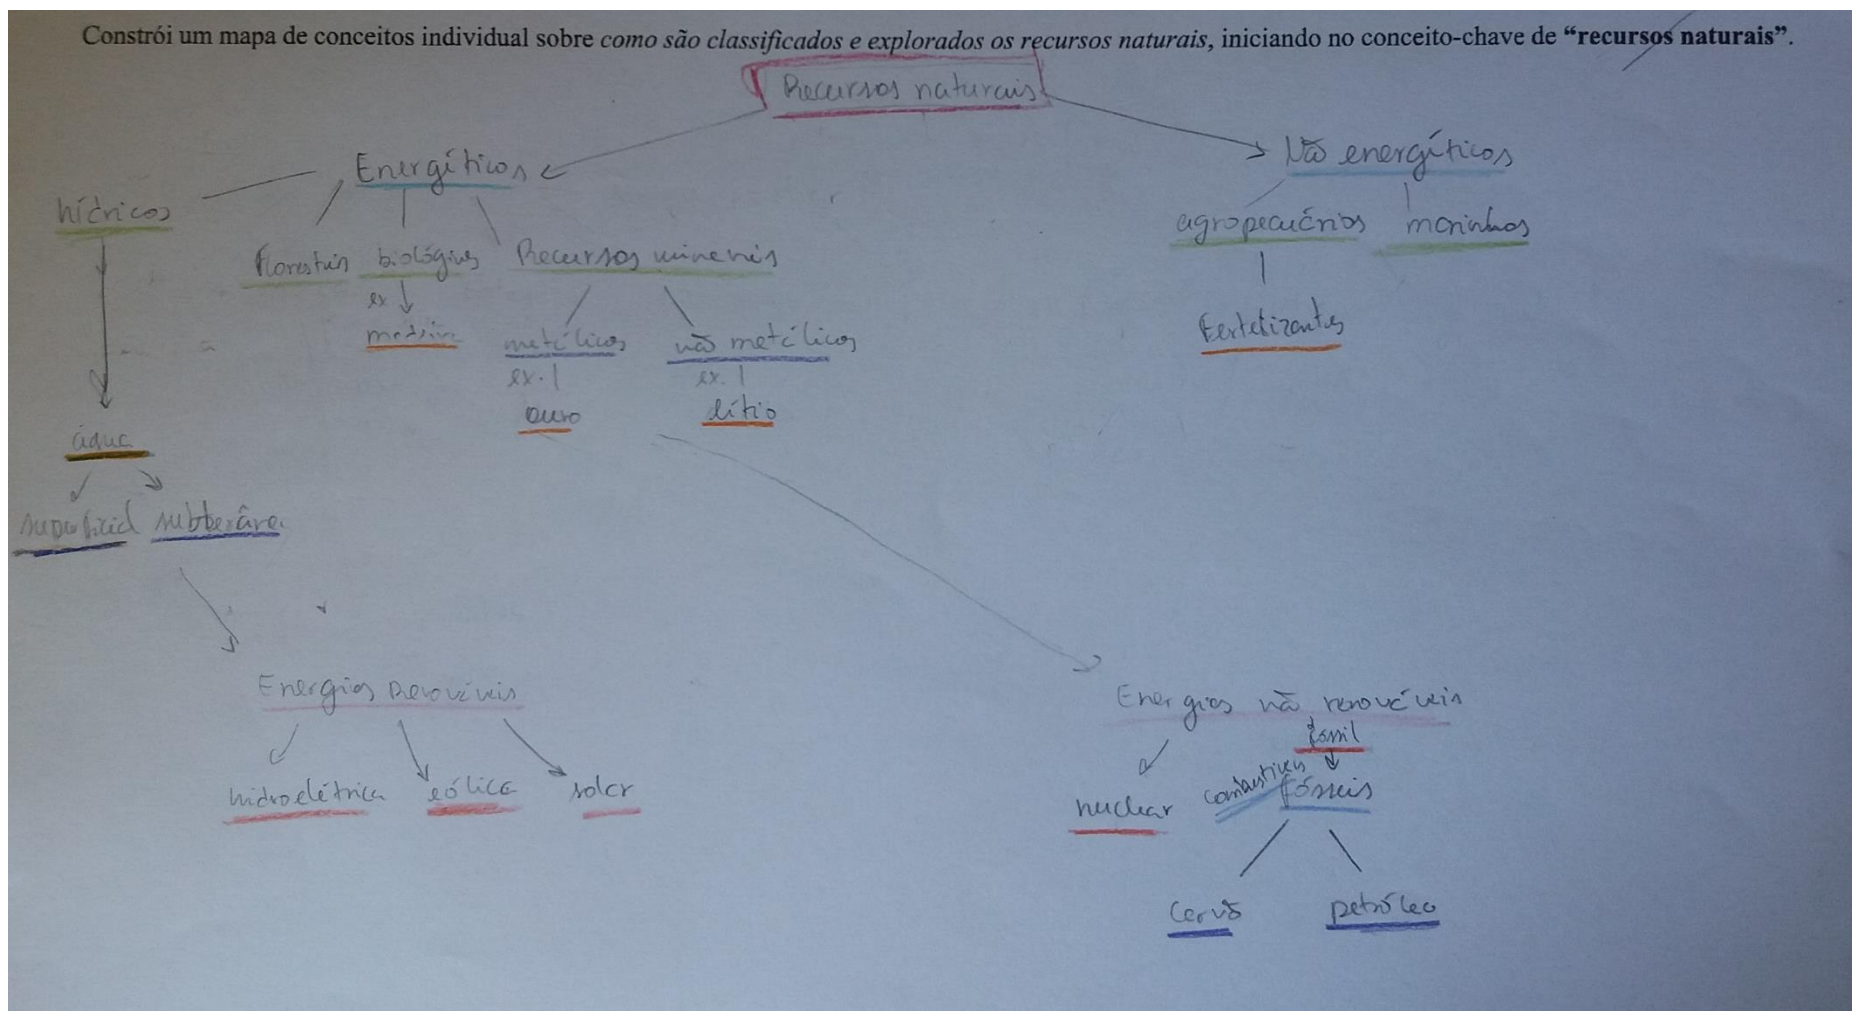 Constrói um mapa de conceitos individual sobre como são classificados e explorados os recursos naturais, iniciando no conceito-chave de “recursos naturais”.
Recursos naturais
Energéticos
Não energéticos
hídricos
Florestais biológicos Recursos minerais
agropecuários marinhos
ex
metálicos não metálicos
Fertelizantes
ex. ex.
ouro lítio
água
superficial subterrânea
Energias Renováveis
Energias não renováveis
fóssil
hidroelétrica eólica solar
nuclear combustíveis fósseis
Carvão petróleo